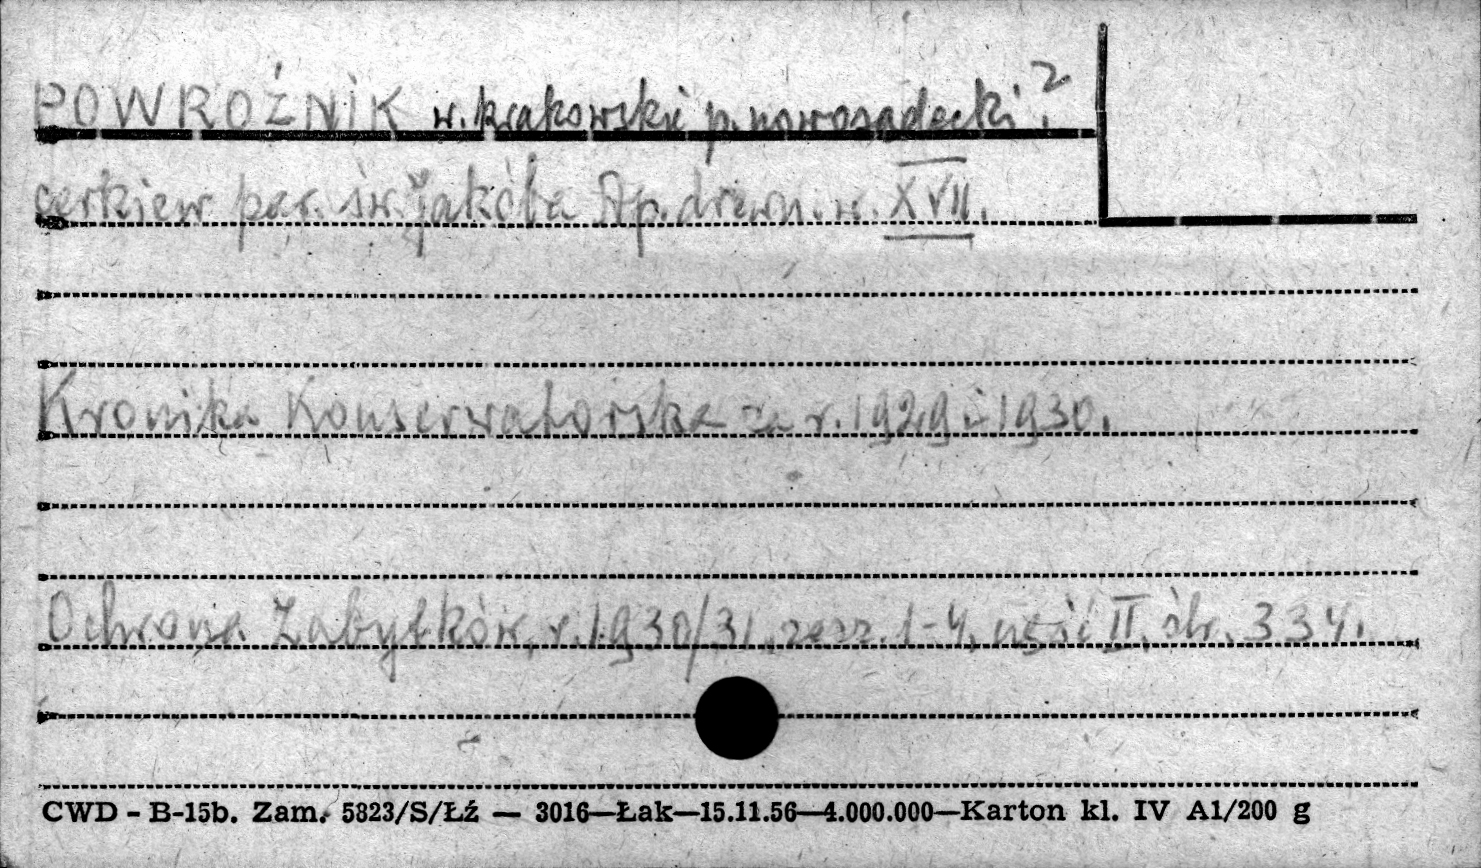 POWROŹNIK w. krakowskie p. nowosądecki. 2
cerkiew par. św. Jakóba Ap. drewn. w. XVII.
Kronika Konserwatorska za r. 1929 i 1930.
Ochrona Zabytków, r. 1930/31, zesz. 1-4, część II, str. 334.
CWD - B-15b. Zam. 5823/S/Łź — 3016—Łak—15.11.56—4.000.000—Karton kl. IV A1/200 g